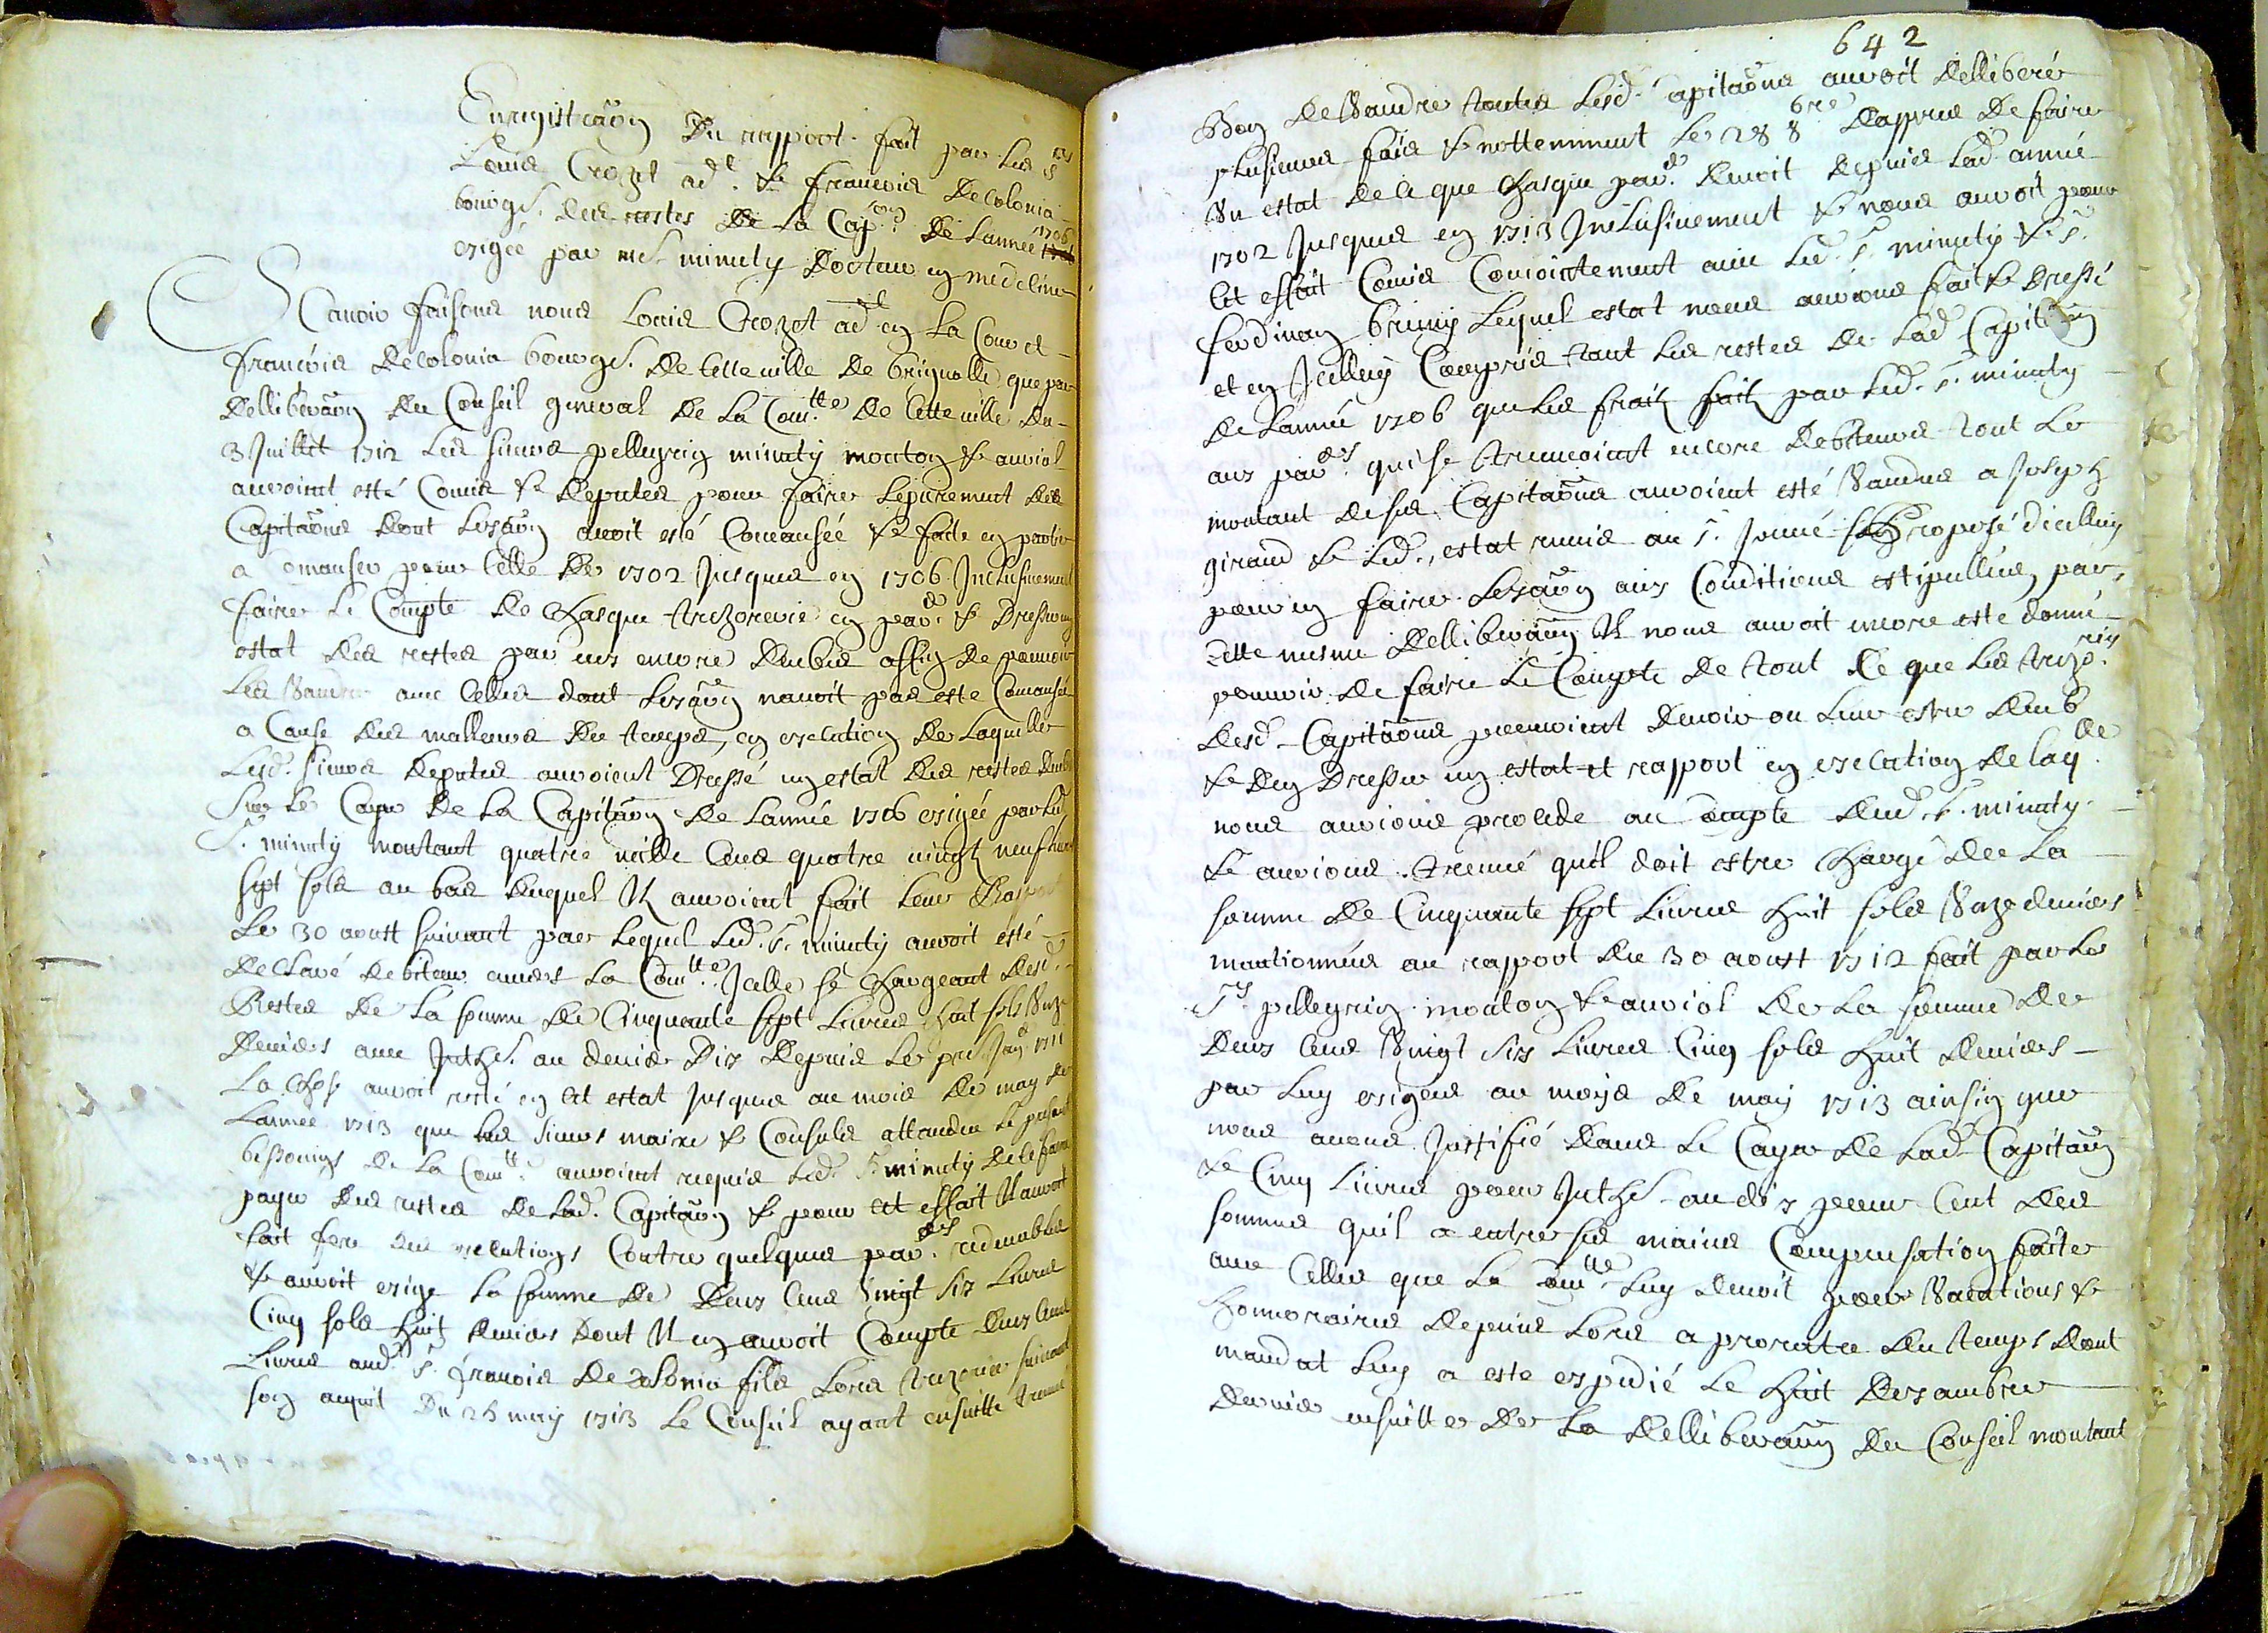 Enregistraōn Du rapport fait par Les srs
Louis Crozet adt. & francois Decolonia
bourgs. des restes De La Capon. De Lannée 1706
exigée par me. minuty Docteur en medecine
Scavoir faisons nous Louis Crozet adt en La Cour et
francois Decolonia bourgs. De Cette ville De brignolle que par
Delliberaōn Du Conseil general De La Comtte. De Cette ville Du
3 Juillet 1712 Les sieurs pellegrin minuty mouton & auriol
auroint esté Comis & Deputes pour faire Lepurement Des
Capitaōns dont Lexaōn avoit esté Comansée & faite en partie
a Comanser pour Celle De 1702 Jusques en 1706 Inclusivement
faire Le Compte De Chasque trezorerie en pard. & Dresser un
estat Des restes par eux encore Deubs affin De pouvoir
Les Vandre avec Celles dont Lexaōn navoit pas este Comansée
a Cause Des malleurs Du temps, en exelution De Laquelle
Lesd. sieurs Deputes auroient Dressé un estat Des restes Deubs
sur Le Cayer De La Capitaōn De Lannée 1706 exigée par Led
Sr. minuty montant quatre mille Cens quatre vingt neuf livres
sept sols au bas Duquel Il auroient fait Leur Rapport
Le 30 aoust suivant par Lequel Led. Sr. minuty auroit esté
Declaré Debiteur envers La Comtte. Icelle se Chargeant Desd.
Restes De La somme De Cinquante sept Livres huit sols Unze
Deniers avec Inths. au denier Dix Depuis Le pr. Janr 1711
La Chose auroit resté en Cet estat Jusques au mois De may De
Lannée 1713 que Les Sieurs maire & Consuls attandeu Le presant
bessoings De La Comtt. auroient requis Led. Sr minuty De se faire
payer Des restes De Lad. Capitaōn & pour Cet effait Il auroit
fait fere Des exelutions Contre quelques pards. redevables
& auroit exige La somme De Deux Cens Vingt six Livres
Cinq sols huit deniers Dont Il en auroit Compte Deux Cens
Livres aud. Sr. francois De Colonia fils Lors trezorier suivant
son aquit Du 26 may 1713 Le Conseil ayant ensuitte trouvé
642
Bon De Vandre toutes Lesd. Capitaōns auroit Delliberé
plusieurs fois & nottemment Le 28 8bre Dappres De faire
Un estat De Ce que Chasque pard. Devoit Depuis Lad. année
1702 Jusques en 1713 Inclusivement & nous auroit pour
Cet effait Comis Conjointement avec Led. Sr. minuty & Sr.
ferdinan bruny Lequel estat nous aurions fait & Dressé
et en Icelluy Compris tant Les restes De Lad Capitaōn
De Lannée 1706 que Les fraix faits par Led. Sr. minuty
aux pards. qui se trouvoient encore Debiteurs tout Le
montant desd. Capitaōns auroient esté Vandues a Joseph
giraud & Led. estat remis au Sr. Jouve son proposé dicelluy
pour en faire Lexaōn aux Conditions estipullées par
Cette mesme Delliberaōn Il nous auroit encore este donné
pouvoir De faire Le Compte De tout Ce que Les trezoriers
Desd. Capitaōns pouvoient Devoir ou Leur estre Deub
& Den Dresser un estat et rapport en exelution De laqlle
nous aurions procede au Compte Dud. Sr. minuty
& aurions trouvé quil doit estre Chargé De La
somme De Cinquante sept Livres huit sols Unze deniers
mantionnées au rapport Du 30 aoust 1712 fait par Les
Srs. pellegrin mouton & auriol De La somme De
Deux Cens Vingt six Livres Cinq sols huit Deniers
par Luy exigées au moys De may 1713 ainsin que
nous avons Justifié Dans Le Cayer De Lad Capitaōn
& Cinq Livres pour Inths. au dix pour Cent Des
sommes quil a entre ses mains Compensation faite
avec Celles que La Comtte. Luy Devoit pour Vacations &
honnoraires Depuis Lors a prorata Du temps Dont
mandat Luy a este expedié Le huit Dexambre
Dernier ensuitte De La Delliberaōn Du Conseil montant